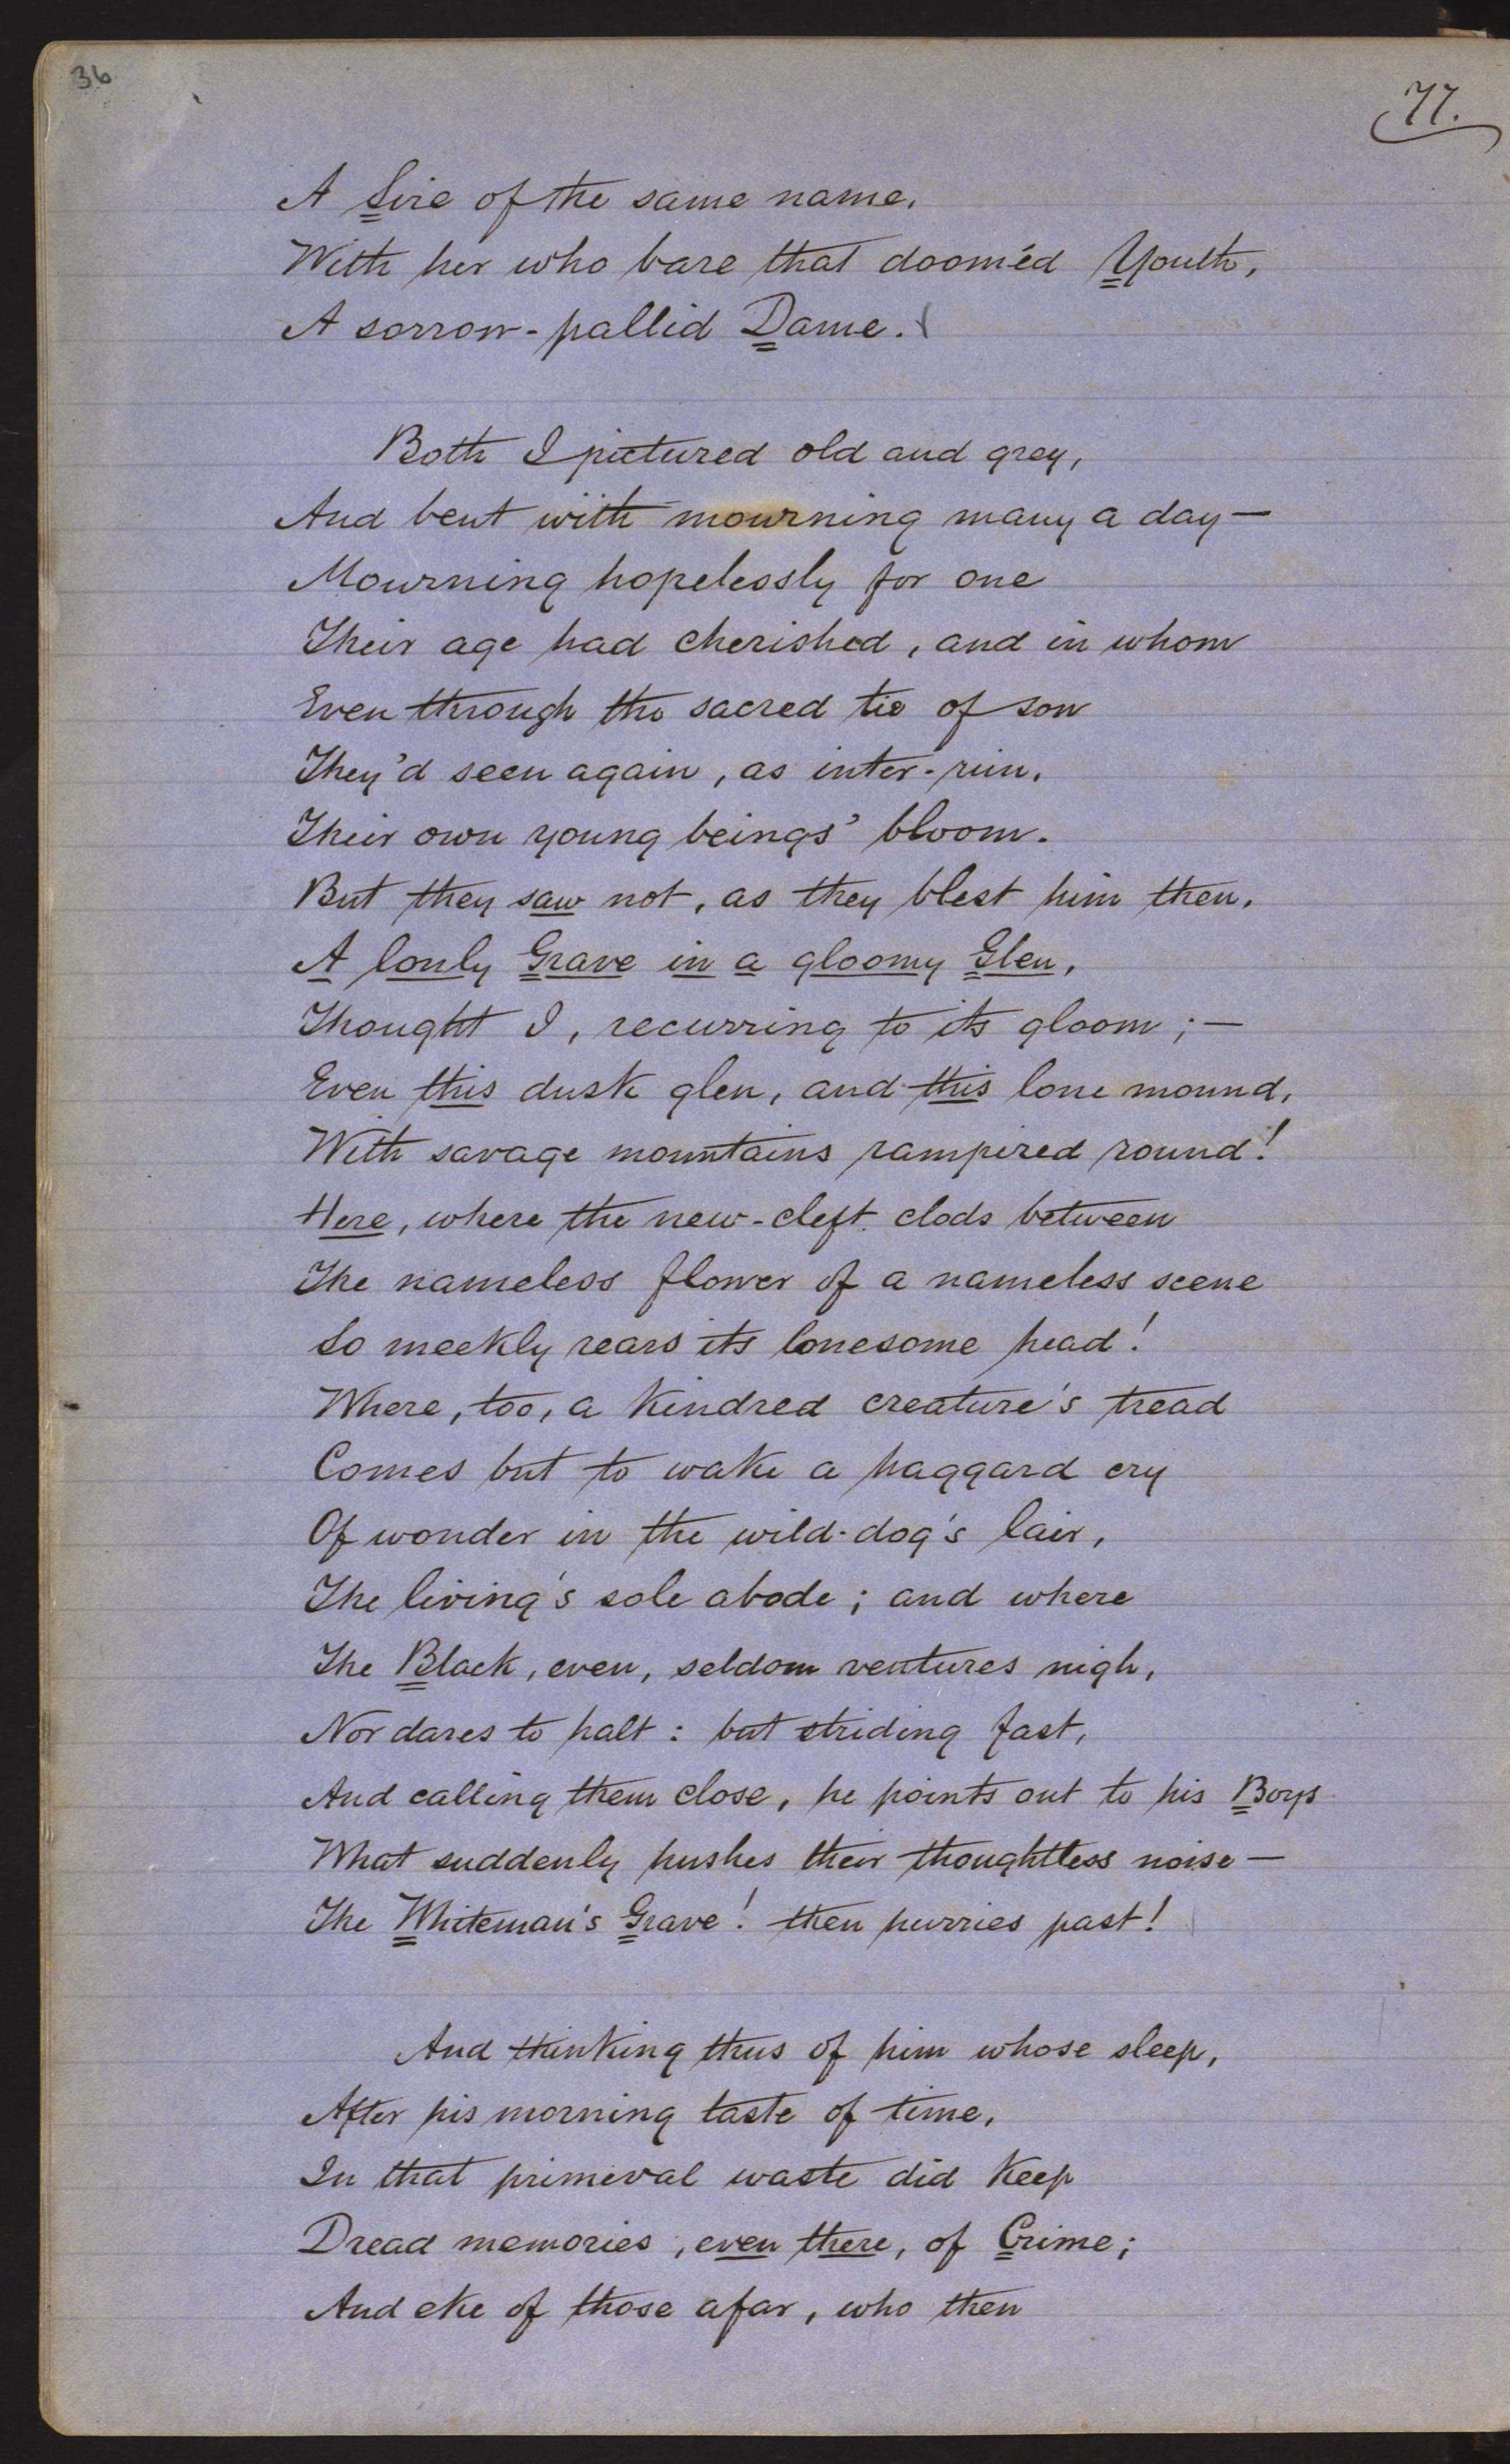 36
77.
A Sire of the same name,
With her who bare that doom'ed Youth,
A sorrow-pallid Dame.
Both I pictured old and grey,
And bent with mourning many a day—
Mourning hopelessly for one
Their age had cherished, and in whom
Even through the sacred tie of son
They'd seen again, as inter-rim,
Their own young beings' bloom.
But they saw not, as they blest him then,
A lonly Grave in a gloomy Glen,
Thought I, recurring to its gloom;—
Even this dusk glen, and this lone mound,
With savage mountains rampired round!
Here, where the new-cleft clods between
The nameless flower of a nameless scene
So meekly rears its lonesome head!
Where, too, a kindred creature's tread
Comes but to wake a haggard cry
Of wonder in the wild-dog's lair,
The living's sole abode; and where
The Black, even, seldom ventures nigh,
Nor dares to halt: but striding fast,
And calling them close, he points out to his Boys
What suddenly hushes their thoughtless noise—
The Whiteman's Grave! then hurries past!
And thinking thus of him whose sleep,
After his morning taste of time,
In that primeval waste did keep
Dread memories, even there, of Crime;
And eke of those afar, who then